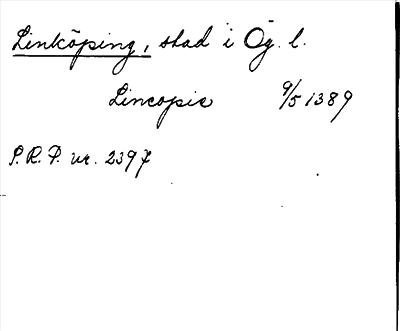 Linköping, stad i Ög. l.
Lincopie 9/5 1389
S.R.P. nr. 2397